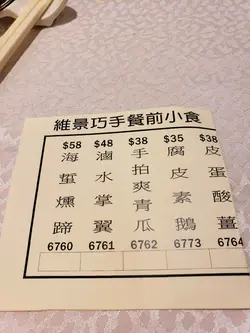 維景巧手餐前小食
$58 $48 $38 $35 $38
海蜇燻蹄
滷水掌翼
手拍爽青瓜
腐皮素鵝
皮蛋酸薑
6760 6761 6762 6773 6764